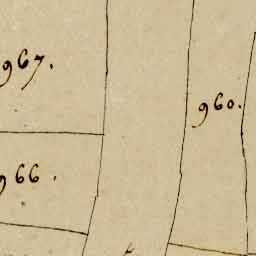 967.
960.
966.